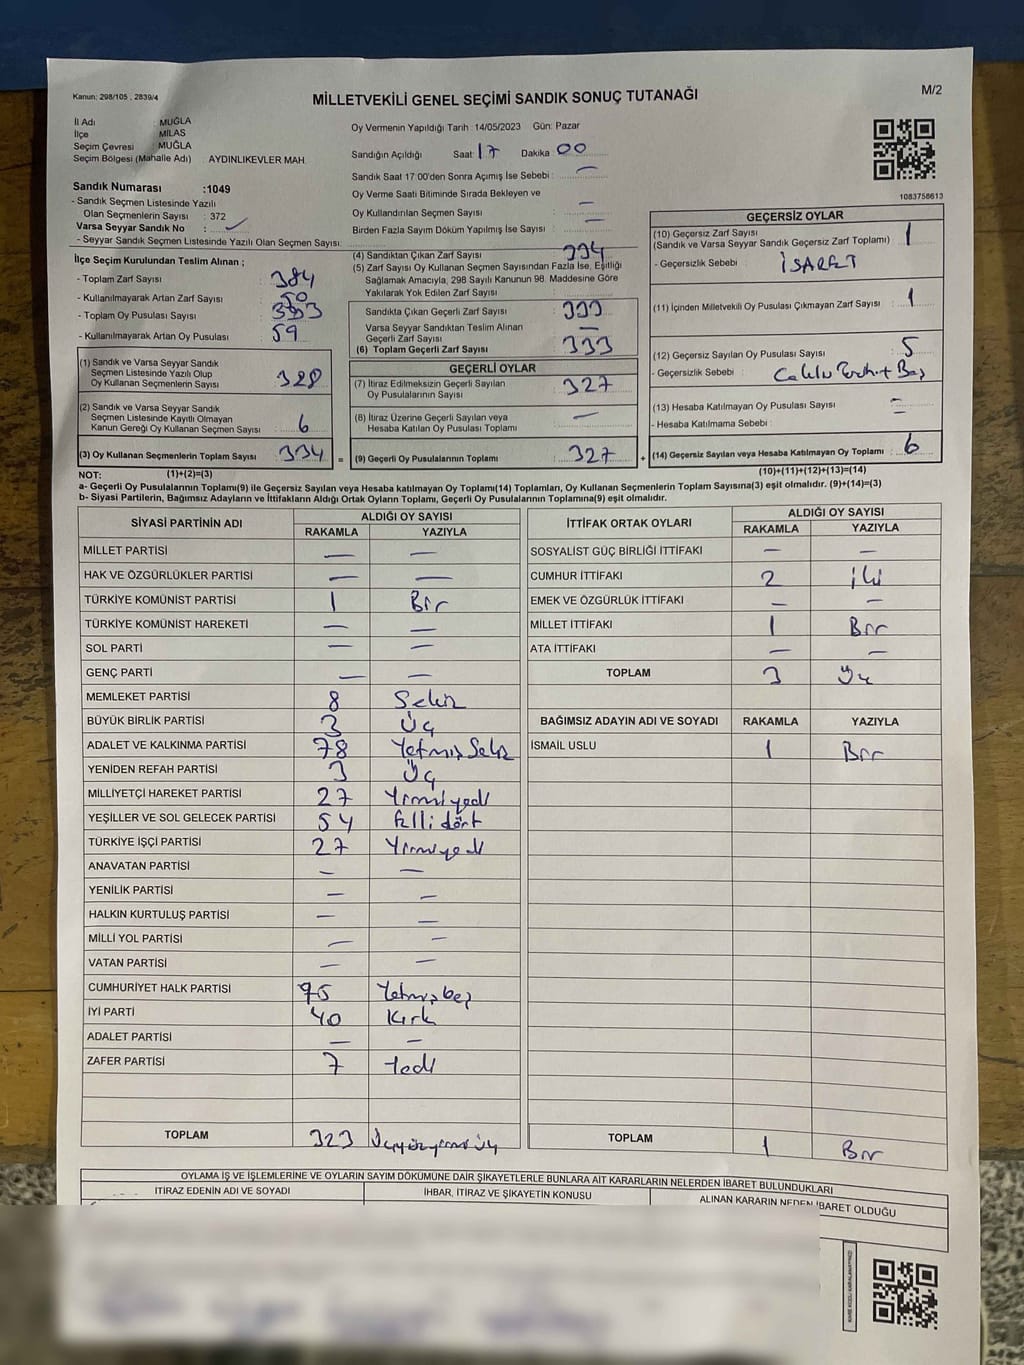 Kanun: 298/105 , 2839/4
MİLLETVEKİLİ GENEL SEÇİMİ SANDIK SONUÇ TUTANAĞI
M/2
İl Adı : MUĞLA
İlçe : MİLAS
Seçim Çevresi : MUĞLA
Seçim Bölgesi (Mahalle Adı) : AYDINLIKEVLER MAH.
Sandık Numarası :1049
- Sandık Seçmen Listesinde Yazılı
Olan Seçmenlerin Sayısı : 372
Varsa Seyyar Sandık No :
- Seyyar Sandık Seçmen Listesinde Yazılı Olan Seçmen Sayısı:
Oy Vermenin Yapıldığı Tarih :14/05/2023 Gün: Pazar
Sandığın Açıldığı Saat: 17 Dakika 00
Sandık Saat 17:00'den Sonra Açımış İse Sebebi : —
Oy Verme Saati Bitiminde Sırada Bekleyen ve
Oy Kullandırılan Seçmen Sayısı —
Birden Fazla Sayım Döküm Yapılmış İse Sayısı : —
1083758613
İlçe Seçim Kurulundan Teslim Alınan ;
- Toplam Zarf Sayısı : 384
- Kullanılmayarak Artan Zarf Sayısı : 50
- Toplam Oy Pusulası Sayısı :
- Kullanılmayarak Artan Oy Pusulası : 59
(1) Sandık ve Varsa Seyyar Sandık
Seçmen Listesinde Yazılı Olup
Oy Kullanan Seçmenlerin Sayısı : 328
(2) Sandık ve Varsa Seyyar Sandık
Seçmen Listesinde Kayıtlı Olmayan
Kanun Gereği Oy Kullanan Seçmen Sayısı : 6
(3) Oy Kullanan Seçmenlerin Toplam Sayısı : 334 =
(4) Sandıktan Çıkan Zarf Sayısı : 334
(5) Zarf Sayısı Oy Kullanan Seçmen Sayısından Fazla İse, Eşitliği
Sağlamak Amacıyla, 298 Sayılı Kanunun 98. Maddesine Göre
Yakılarak Yok Edilen Zarf Sayısı :
Sandıkta Çıkan Geçerli Zarf Sayısı : 333
Varsa Seyyar Sandıktan Teslim Alınan
Geçerli Zarf Sayısı : —
(6) Toplam Geçerli Zarf Sayısı : 333
GEÇERLİ OYLAR
(7) İtiraz Edilmeksizin Geçerli Sayılan
Oy Pusulalarının Sayısı : 327
(8) İtiraz Üzerine Geçerli Sayılan veya
Hesaba Katılan Oy Pusulası Toplamı : —
(9) Geçerli Oy Pusulalarının Toplamı : 327 +
GEÇERSİZ OYLAR
(10) Geçersiz Zarf Sayısı : 1
(Sandık ve Varsa Seyyar Sandık Geçersiz Zarf Toplamı)
- Geçersizlik Sebebi : İŞARET
(11) İçinden Milletvekili Oy Pusulası Çıkmayan Zarf Sayısı : 1
(12) Geçersiz Sayılan Oy Pusulası Sayısı : 5
- Geçersizlik Sebebi :
(13) Hesaba Katılmayan Oy Pusulası Sayısı : —
- Hesaba Katılmama Sebebi : —
(14) Geçersiz Sayılan veya Hesaba Katılmayan Oy Toplamı : 6
NOT: (1)+(2)=(3) (10)+(11)+(12)+(13)=(14)
a- Geçerli Oy Pusulalarının Toplamı(9) ile Geçersiz Sayılan veya Hesaba katılmayan Oy Toplamı(14) Toplamları, Oy Kullanan Seçmenlerin Toplam Sayısına(3) eşit olmalıdır. (9)+(14)=(3)
b- Siyasi Partilerin, Bağımsız Adayların ve İttifakların Aldığı Ortak Oyların Toplamı, Geçerli Oy Pusulalarının Toplamına(9) eşit olmalıdır.
SİYASİ PARTİNİN ADI ALDIĞI OY SAYISI
RAKAMLA YAZIYLA
MİLLET PARTİSİ — —
HAK VE ÖZGÜRLÜKLER PARTİSİ — —
TÜRKİYE KOMÜNİST PARTİSİ 1 Bir
TÜRKİYE KOMÜNİST HAREKETİ — —
SOL PARTİ — —
GENÇ PARTİ — —
MEMLEKET PARTİSİ 8 Sekiz
BÜYÜK BİRLİK PARTİSİ 3 Üç
ADALET VE KALKINMA PARTİSİ 78 Yetmiş Sekiz
YENİDEN REFAH PARTİSİ 3 Üç
MİLLİYETÇİ HAREKET PARTİSİ 27 Yirmiyedi
YEŞİLLER VE SOL GELECEK PARTİSİ 54 Ellidört
TÜRKİYE İŞÇİ PARTİSİ 27 Yirmiyedi
ANAVATAN PARTİSİ — —
YENİLİK PARTİSİ — —
HALKIN KURTULUŞ PARTİSİ — —
MİLLİ YOL PARTİSİ — —
VATAN PARTİSİ — —
CUMHURİYET HALK PARTİSİ 75 Yetmişbeş
İYİ PARTİ 40 Kırk
ADALET PARTİSİ — —
ZAFER PARTİSİ 7 Yedi
TOPLAM 323 Üçyüzyirmiüç
İTTİFAK ORTAK OYLARI ALDIĞI OY SAYISI
RAKAMLA YAZIYLA
SOSYALİST GÜÇ BİRLİĞİ İTTİFAKI — —
CUMHUR İTTİFAKI 2 iki
EMEK VE ÖZGÜRLÜK İTTİFAKI — —
MİLLET İTTİFAKI 1 Bir
ATA İTTİFAKI — —
TOPLAM 3 Üç
BAĞIMSIZ ADAYIN ADI VE SOYADI RAKAMLA YAZIYLA
İSMAİL USLU 1 Bir
TOPLAM 1 Bir
OYLAMA İŞ VE İŞLEMLERİNE VE OYLARIN SAYIM DÖKÜMÜNE DAİR ŞİKAYETLERLE BUNLARA AİT KARARLARIN NELERDEN İBARET BULUNDUKLARI
İTİRAZ EDENİN ADI VE SOYADI İHBAR, İTİRAZ VE ŞİKAYETİN KONUSU ALINAN KARARIN NEDEN İBARET OLDUĞU